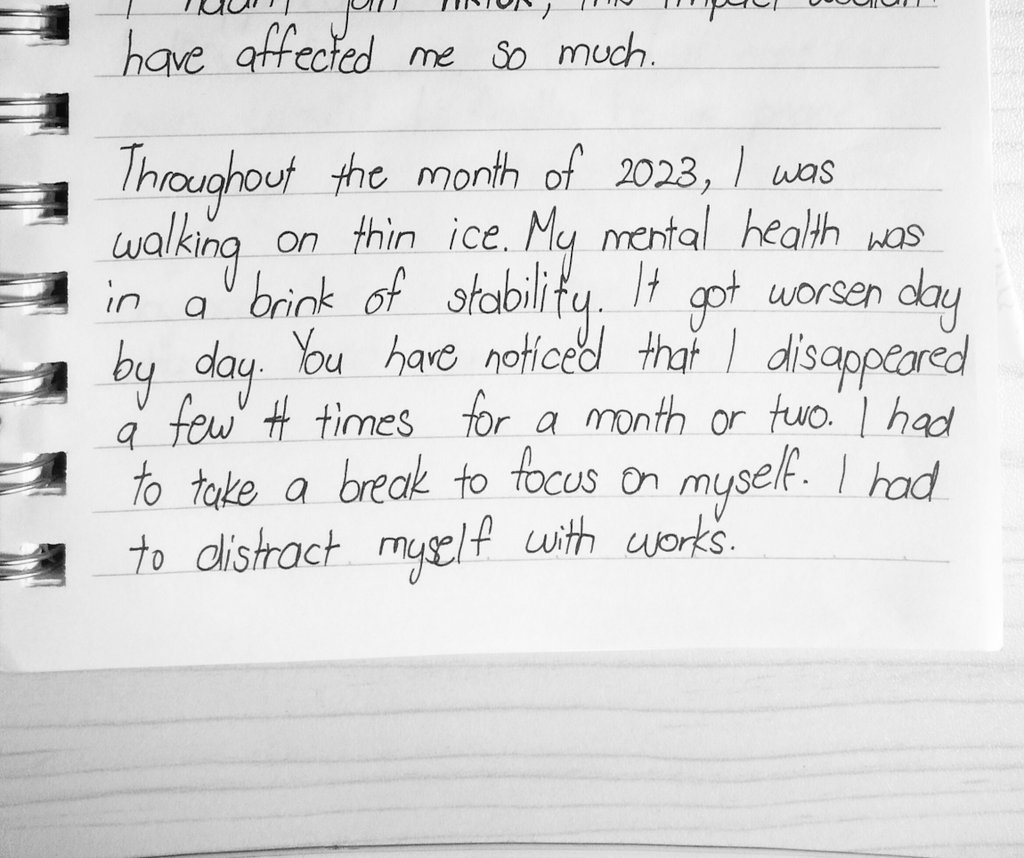 I hadn't join TikTok, this impact wouldn't
have affected me so much.
Throughout the month of 2023, I was
walking on thin ice. My mental health was
in a brink of stability. It got worsen day
by day. You have noticed that I disappeared
a few times for a month or two. I had
to take a break to focus on myself. I had
to distract myself with works.